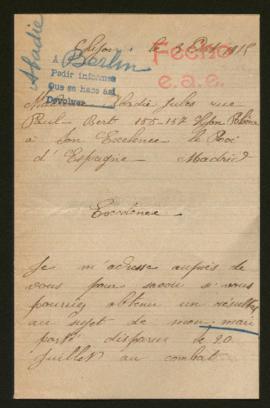 Abadie
Lyon le 5 1915
A Berlin
Pedir informe
Que se haga así
Devolver
Fecho
e.a.e.
Abadie Jules rue
Paul Bert 155-157 Lyon Rhône
à Son Excelence le Roi
d'Espagne Madrid
Excelence
Je m'adresse auprès de
vous pour savoir si vous
pourriez obtenir un résultat
au sujet de mon mari
porté disparu le 20
Juillet au combat